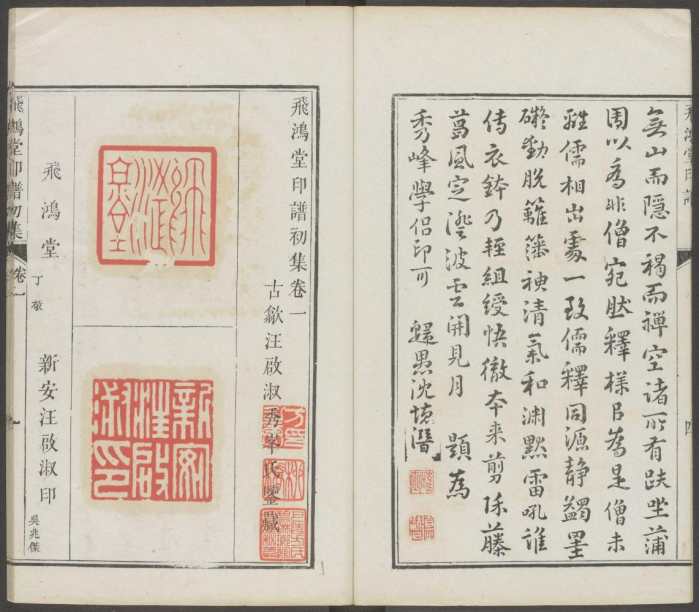 無山而隱不褐而禪空諸所有趺坐蒲
團以為非僧宛肰釋樣臣為是僧未
離儒相出處一致儒釋同源靜蠲墨
礙動脫籬藩襖清氣和淵默雷吼誰
傳衣鉢乃輕組綬快徹本来剪除藤
葛風定澄波雲開見月 題為
秀峰學侶印可 沈
飛鴻堂印譜初集卷一
古歙汪啟淑秀峯氏鑒藏
飛鴻堂
新安汪啟淑印
飛鴻堂 丁敬
新安汪啟淑印 吳兆傑
飛鴻堂印譜初集 卷一